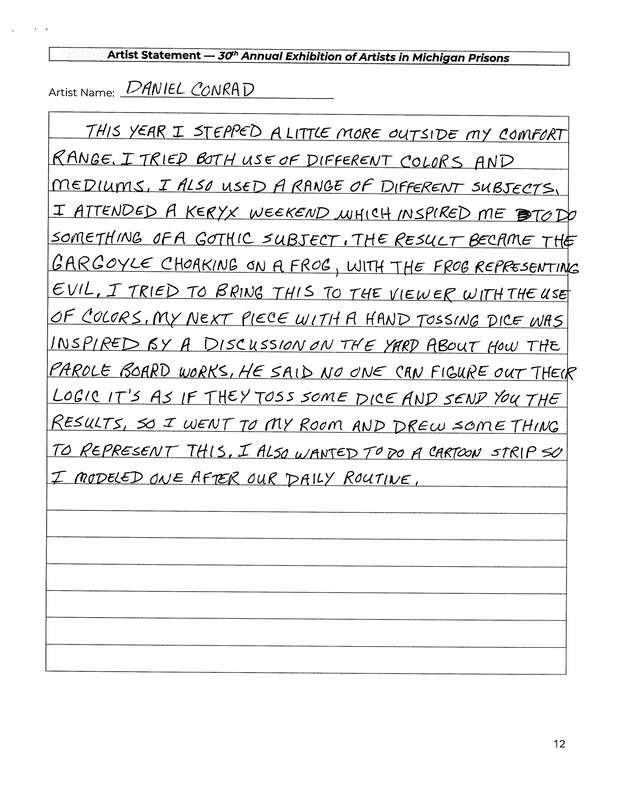 Artist Statement — 30th Annual Exhibition of Artists in Michigan Prisons
Artist Name: DANIEL CONRAD
THIS YEAR I STEPPED A LITTLE MORE OUTSIDE MY COMFORT
RANGE. I TRIED BOTH USE OF DIFFERENT COLORS AND
MEDIUMS. I ALSO USED A RANGE OF DIFFERENT SUBJECTS.
I ATTENDED A KERYX WEEKEND WHICH INSPIRED ME TO DO
SOMETHING OF A GOTHIC SUBJECT. THE RESULT BECAME THE
GARGOYLE CHOAKING ON A FROG, WITH THE FROG REPRESENTING
EVIL. I TRIED TO BRING THIS TO THE VIEWER WITH THE USE
OF COLORS. MY NEXT PIECE WITH A HAND TOSSING DICE WAS
INSPIRED BY A DISCUSSION ON THE YARD ABOUT HOW THE
PAROLE BOARD WORKS. HE SAID NO ONE CAN FIGURE OUT THEIR
LOGIC IT'S AS IF THEY TOSS SOME DICE AND SEND YOU THE
RESULTS, SO I WENT TO MY ROOM AND DREW SOME THING
TO REPRESENT THIS. I ALSO WANTED TO DO A CARTOON STRIP SO
I MODELED ONE AFTER OUR DAILY ROUTINE.
12